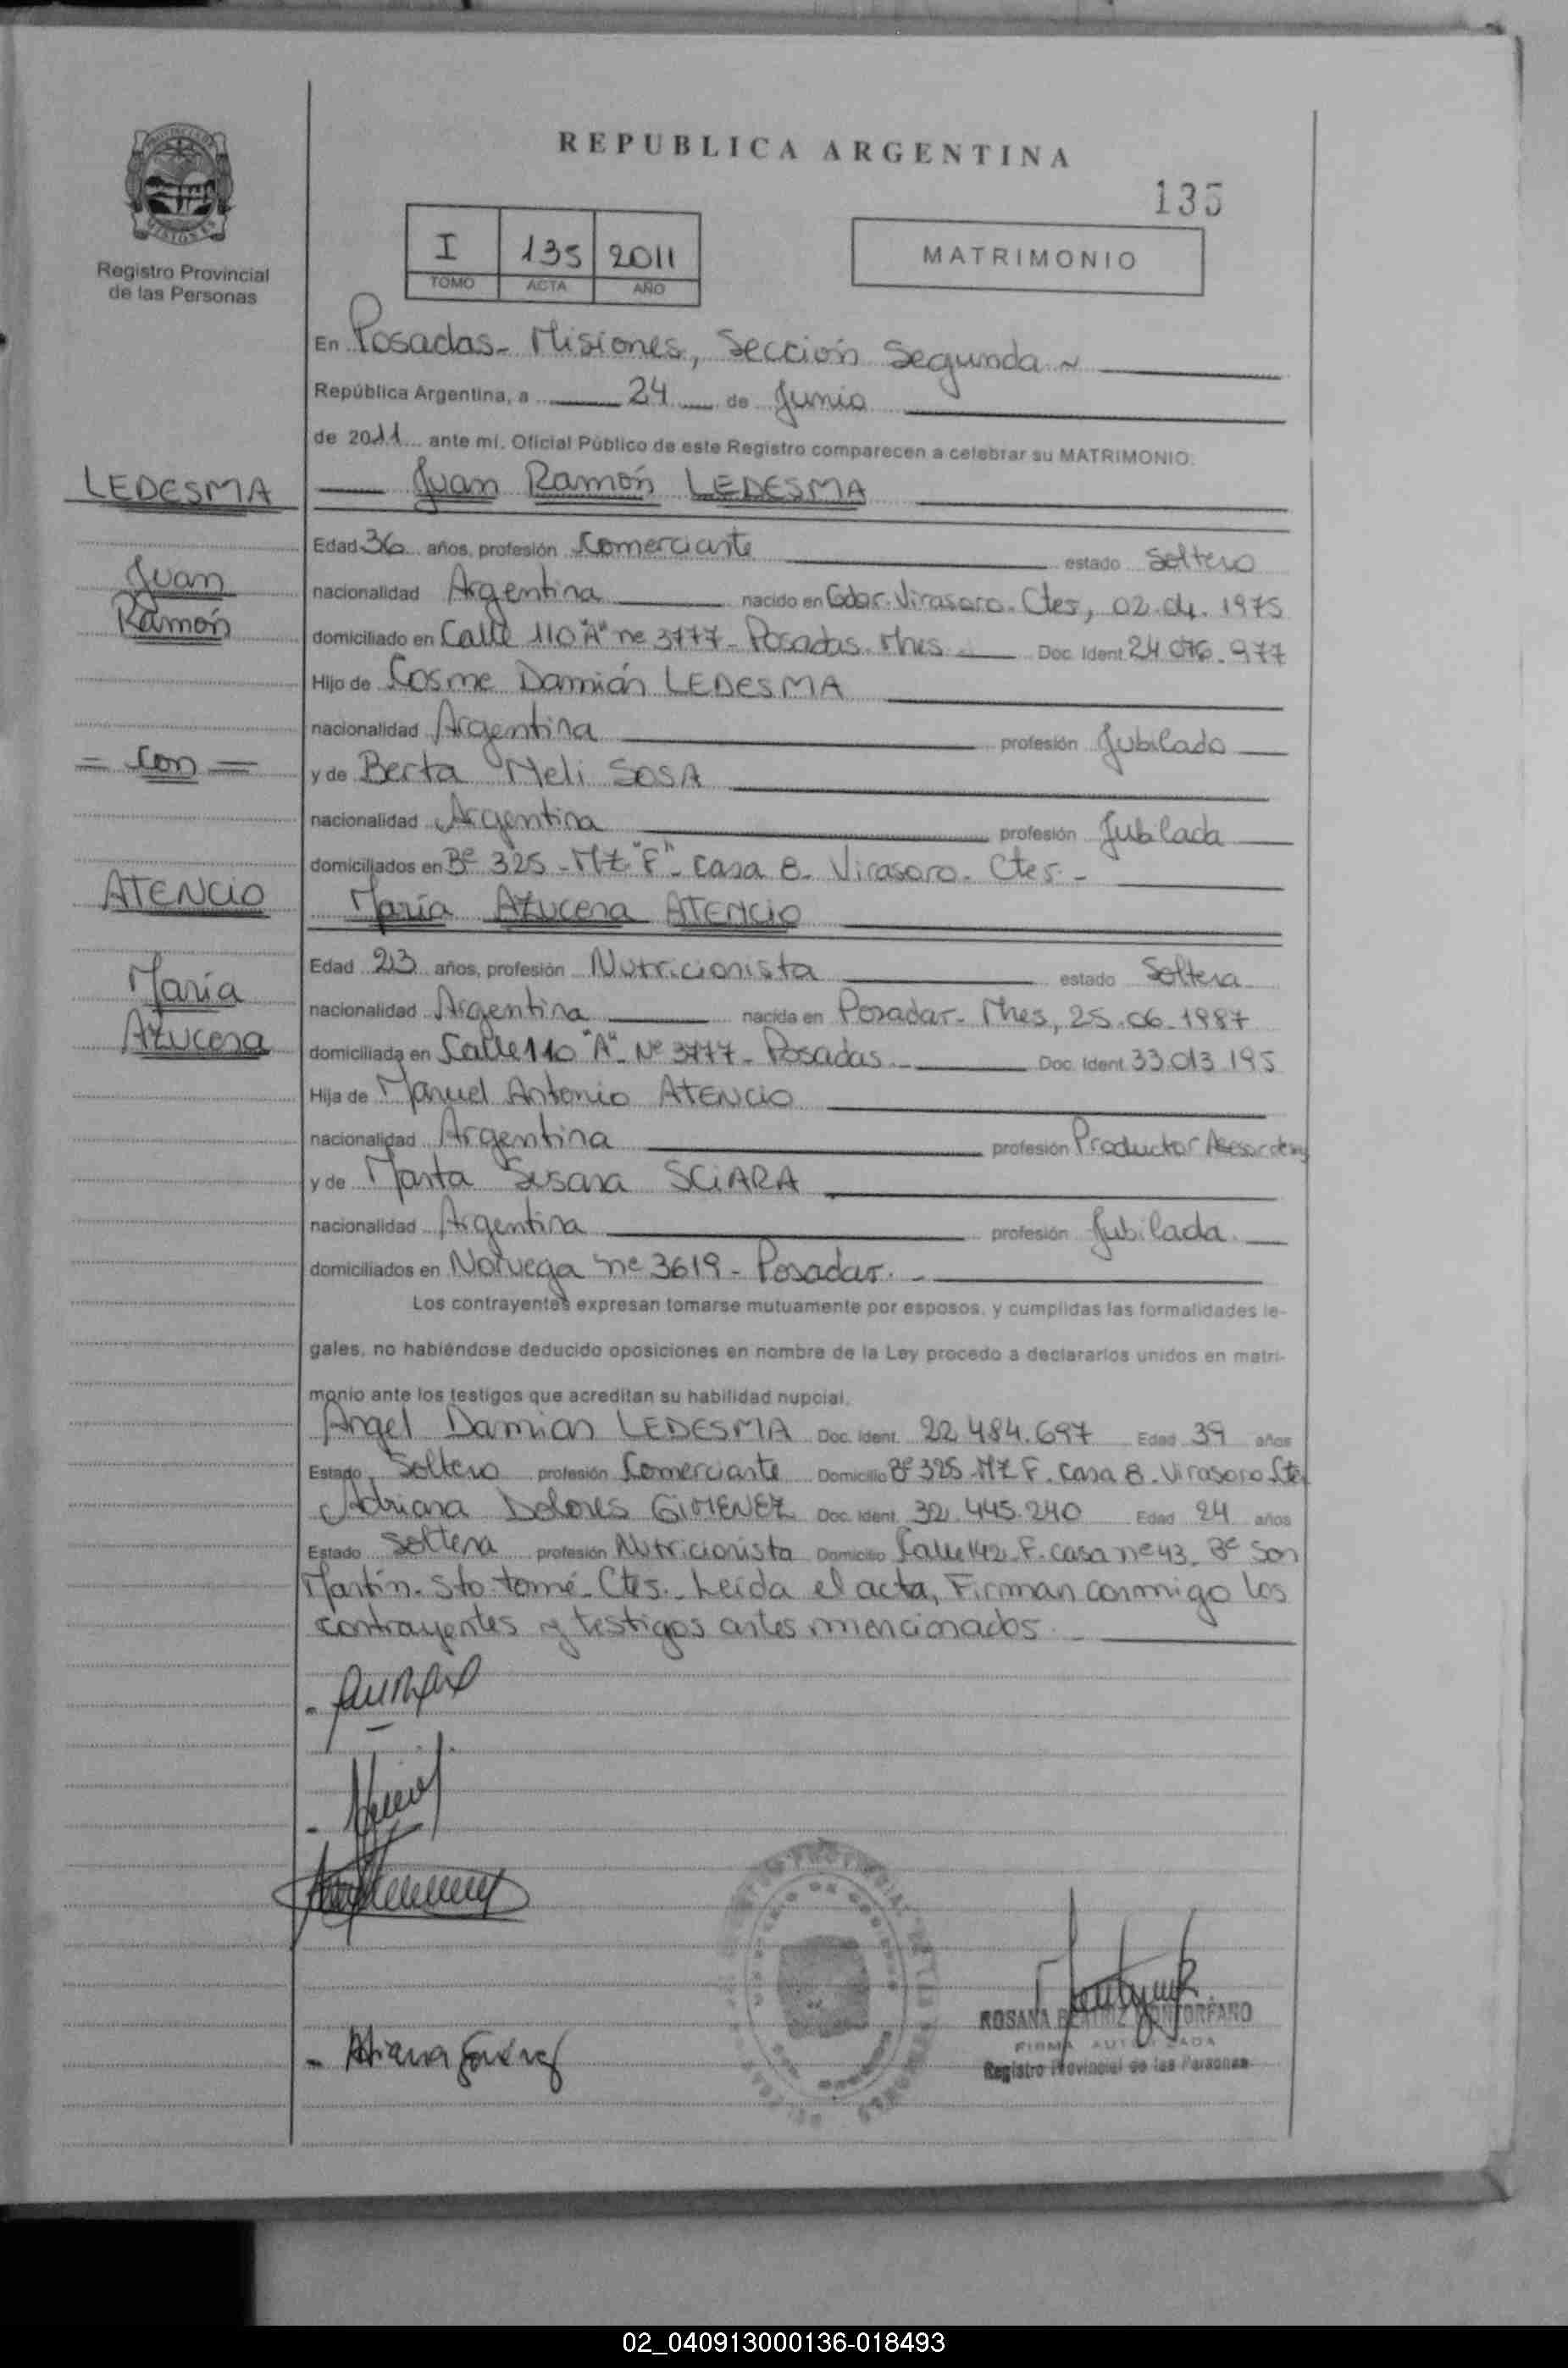 REPUBLICA ARGENTINA
135
Registro Provincial
de las Personas
I 135 2011
TOMO ACTA AÑO
MATRIMONIO
En Posadas - Misiones, Sección Segunda ~
República Argentina, a 24 de Junio
de 2011 ante mí, Oficial Público de este Registro comparecen a celebrar su MATRIMONIO.
LEDESMA
Juan Ramón LEDESMA
Edad 36 años, profesión Comerciante estado Soltero
Juan
nacionalidad Argentina nacido en Gdor. Virasoro. Ctes, 02.04.1975
Ramón
domiciliado en Calle 110 "A" nº 3777 - Posadas. Mnes Doc. Ident. 24.076.977
Hijo de Cosme Damián LEDESMA
nacionalidad Argentina profesión Jubilado
= Con =
y de Berta Neli SOSA
nacionalidad Argentina profesión Jubilada
domiciliados en Bº 325 - MZ "F" - Casa 8 - Virasoro - Ctes. -
ATENCIO
María Azucena ATENCIO
Edad 23 años, profesión Nutricionista estado Soltera
María
nacionalidad Argentina nacida en Posadas - Mnes, 25.06.1987
Azucena
domiciliada en Calle 110 "A" - Nº 3777 - Posadas. - Doc. Ident. 33.013.195
Hija de Manuel Antonio ATENCIO
nacionalidad Argentina profesión Productor Asesor de
y de Marta Susana SCIARA
nacionalidad Argentina profesión Jubilada
domiciliados en Noruega nº 3619 - Posadas. -
Los contrayentes expresan tomarse mutuamente por esposos, y cumplidas las formalidades le-
gales, no habiéndose deducido oposiciones en nombre de la Ley procedo a declararlos unidos en matri-
monio ante los testigos que acreditan su habilidad nupcial.
Angel Damian LEDESMA Doc. Ident. 22.484.697 Edad 39 años
Estado Soltero profesión Comerciante Domicilio Bº 325 - MZ F. Casa 8. Virasoro Ctes
Adriana Dolores GIMENEZ Doc. Ident. 32.445.240 Edad 24 años
Estado Soltera profesión Nutricionista Domicilio Calle 142 - F. casa nº 43. Bº San
Martín. Sto. tomé - Ctes. - Leída el acta, Firman conmigo los
contrayentes y testigos antes mencionados. -
ROSANA BEATRIZ MONFORFANO
FIRMA AUTORIZADA
Registro Provincial de las Personas
02_040913000136-018493